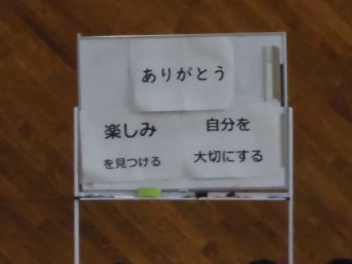 ありがとう
楽しみ
を見つける
自分を
大切にする